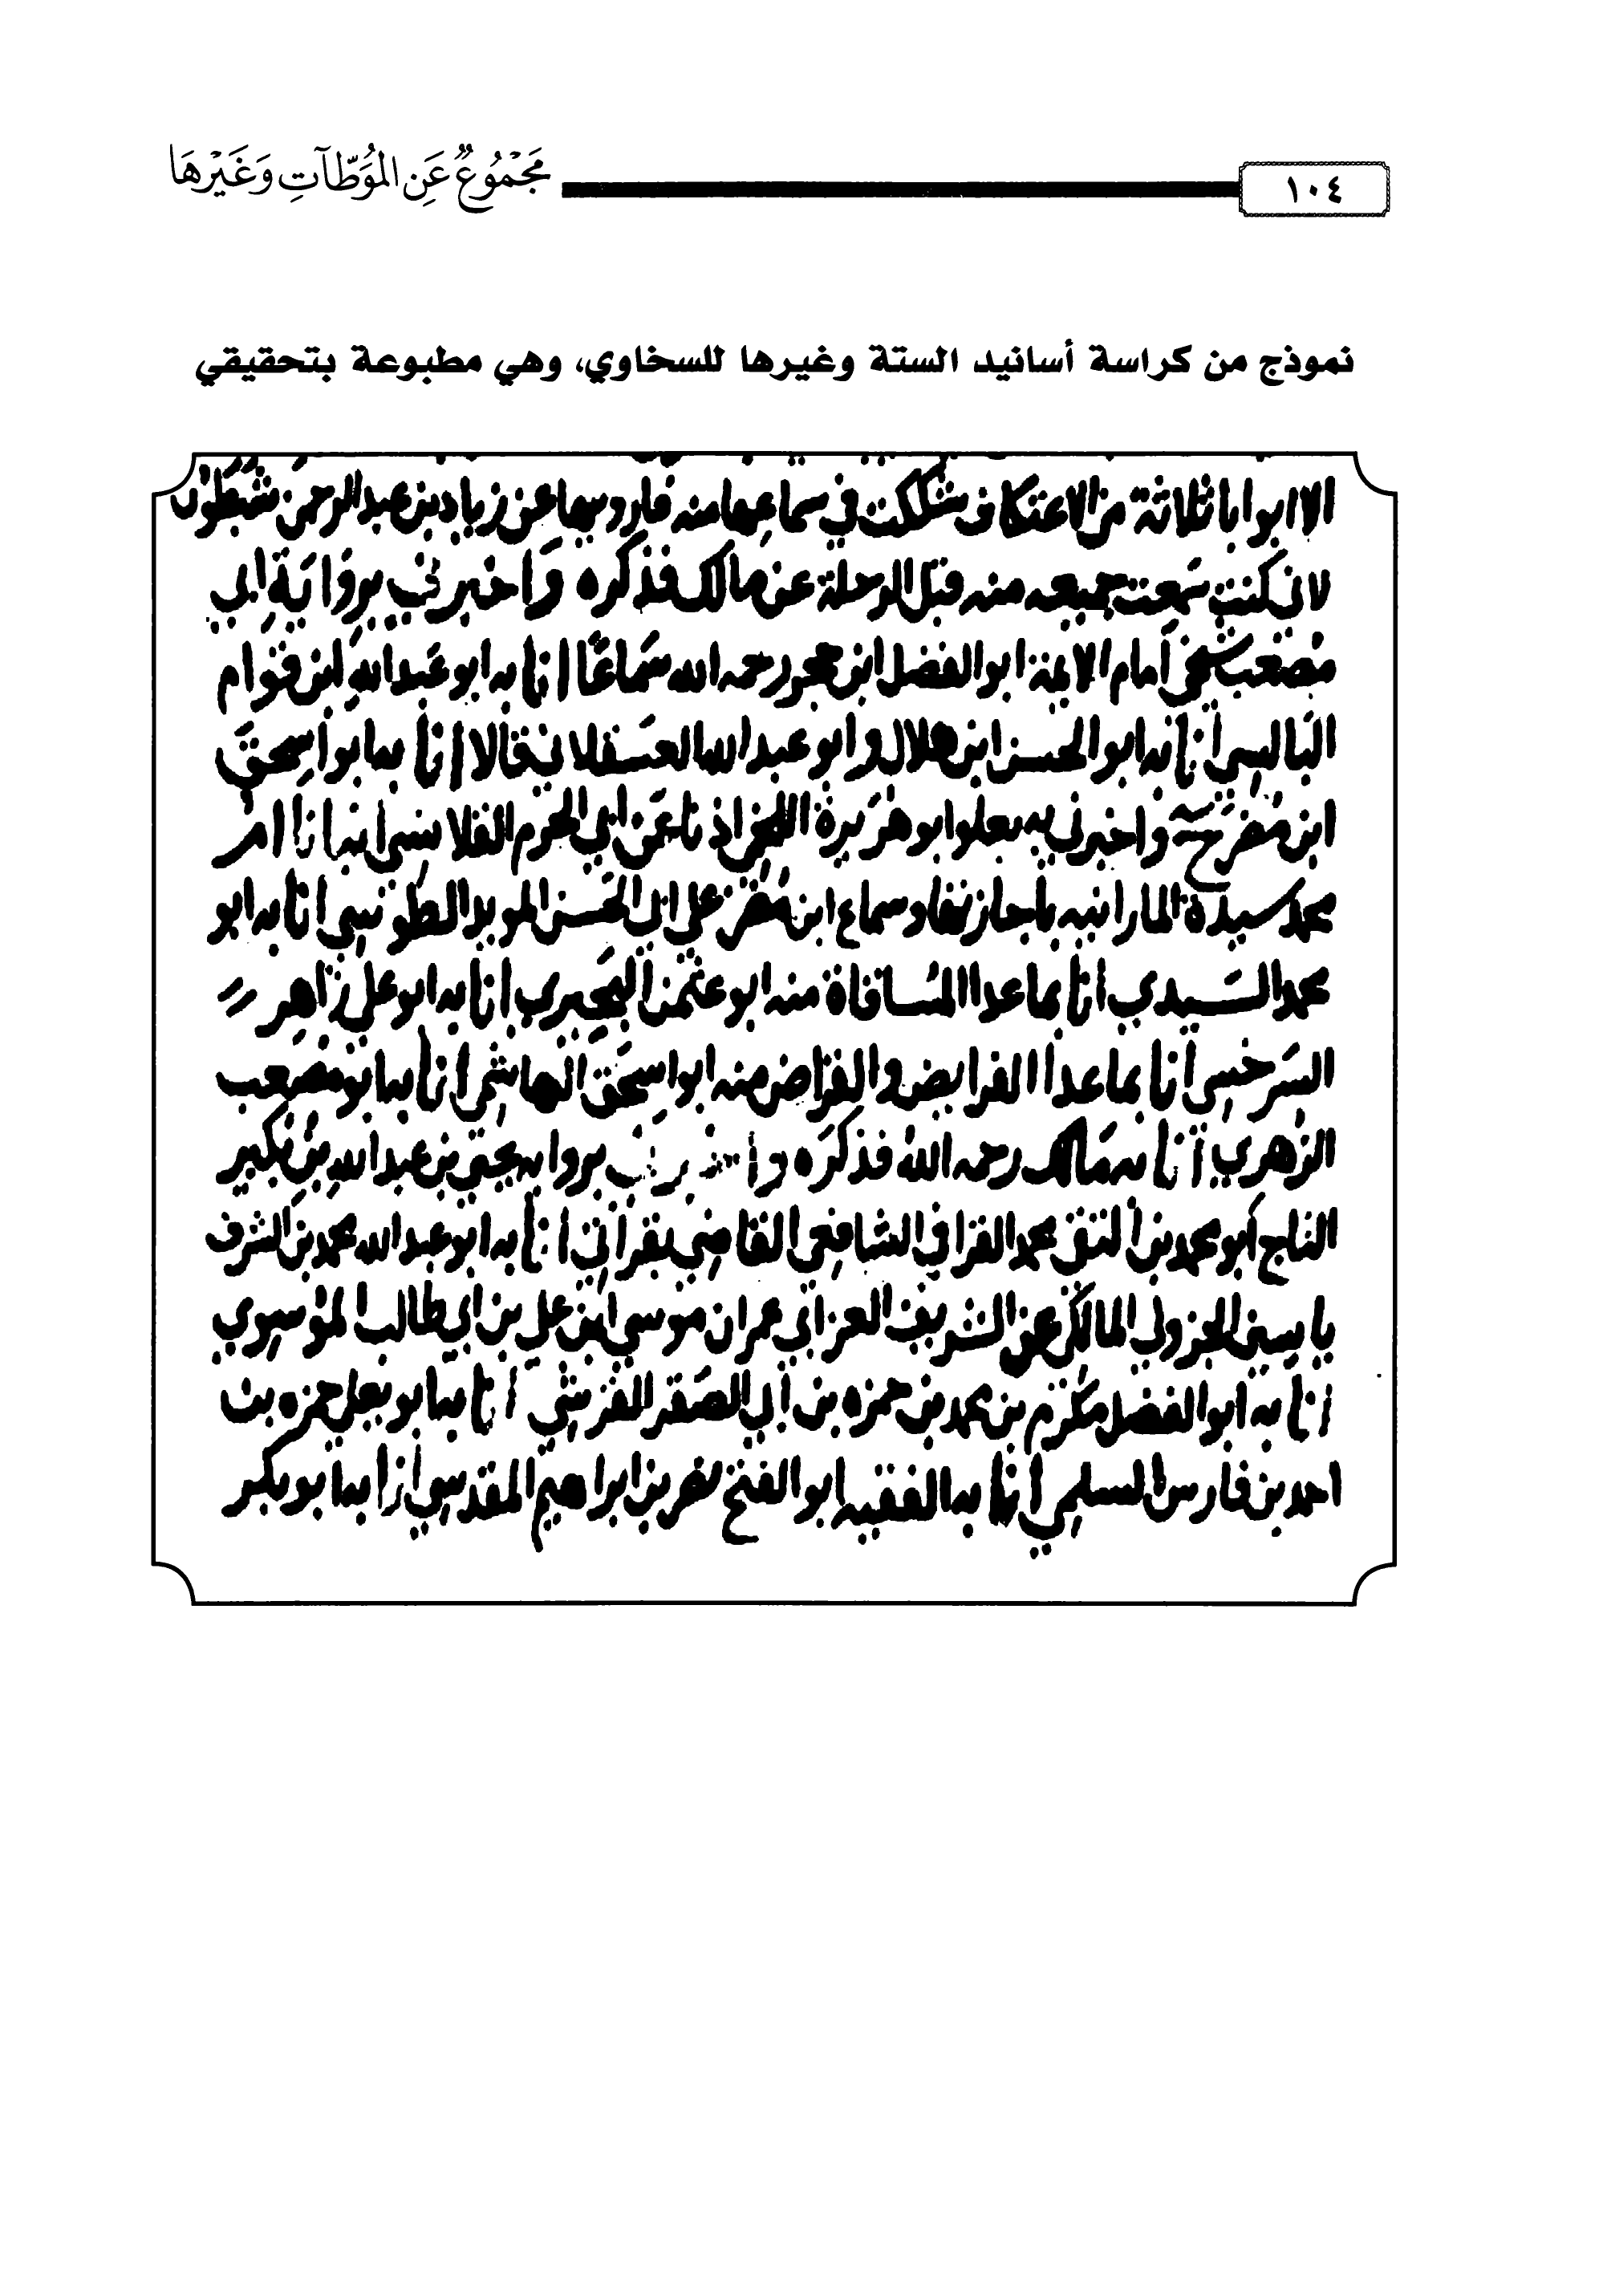 ١٠٤
مَجْمُوعٌ عَنِ المُوَطَّآتِ وَغَيْرِهَا
نموذج من كراسة أسانيد الستة وغيرها للسخاوي، وهي مطبوعة بتحقيقي
الا ابوابا ثلاثة من الاعتكاف شككت في سماعها منه فارويها عن زياد بن عبد الرحمن شبطون
لاني كنت سمعت جميعه منه قبل الرحلة عن مالك فذكره وَاخبرني بروَايَةِ ابي
مصعب شيخي امام الايمة ابو الفضل ابن حجر رحمه الله سَماعًا انا به ابو عَبد الله ابن قوام
البَالسِي انا به ابو الحسن ابن هلال وابو عبد الله العسقلاني قالا انا به ابو اسحق
ابن مضر ح واخبرني به بعلو ابو هرَيرة اللخمي اذنا عن ابي الحرم القلانسي انبانا ام
محمد سيدة المارانيه باجازتها وسماع ابن مضر على ابي الحسن المويد الطوسي انا به ابو
محمد السَيدي انا بما عدا المسَاقاة منه ابو عثمن البحيري انا به ابو علي زاهر
السَرخسي انا بما عدا الفرايض والقراض منه ابو اسحق الهاشمي انا به ابو مصعب
الزهري انا به مَالك رحمه الله فذكَره بروايه يحيى بن عبد الله بن بكير
التاج ابو محمد بن التقي محمد القرافي الشافعي القاضي بقراتي انا به ابو عبد الله محمد بن الشرف
ياسين الجزولي المالكي عن الشريف العز ابي عمران موسى ابن علي بن ابي طالب الموسوي
انا به ابو الفضل مكرم بن محمد بن حمزه بن ابي الصَقر القرشي انا به ابو يعلى حمزه بن
احمد بن فارس السلمي انا به الفقيه ابو الفتح نصر بن ابراهيم المقدسي انا به ابو بكر